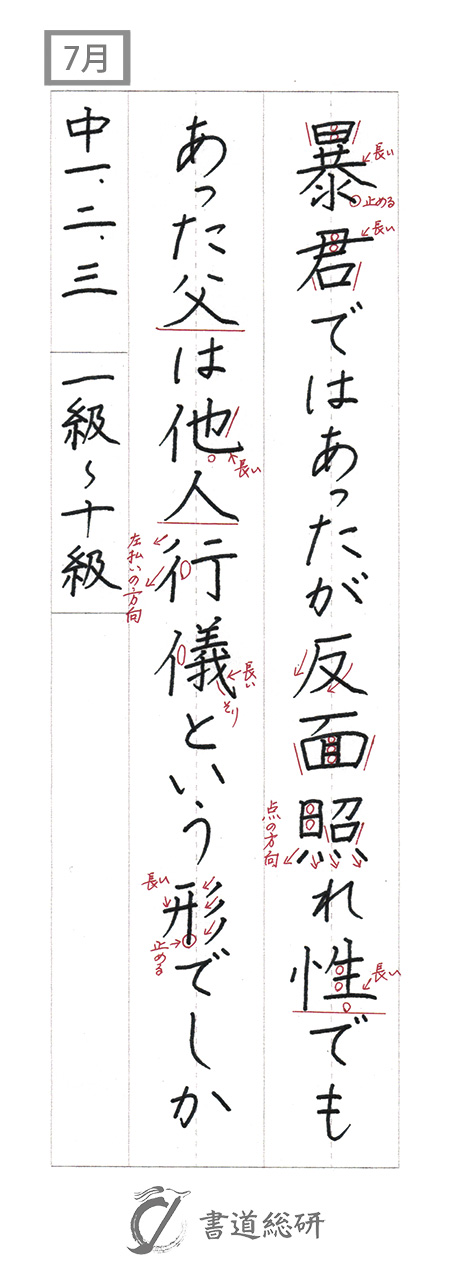 7月
暴君ではあったが反面照れ性でも
長い
止める
長い
点の方向
長い
あった父は他人行儀という形でしか
長い
左払いの方向
長い
そり
長い
止める
中一、二、三
一級〜十級
書道総研